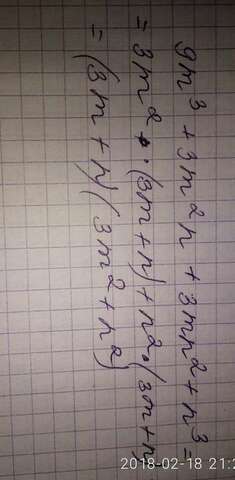 9m³ + 3m²n + 3mn² + n³ =
= 3m² · (3m + n) + n² · (3m + n)
= (3m + n) (3m² + n²)
2018-02-18 21:2